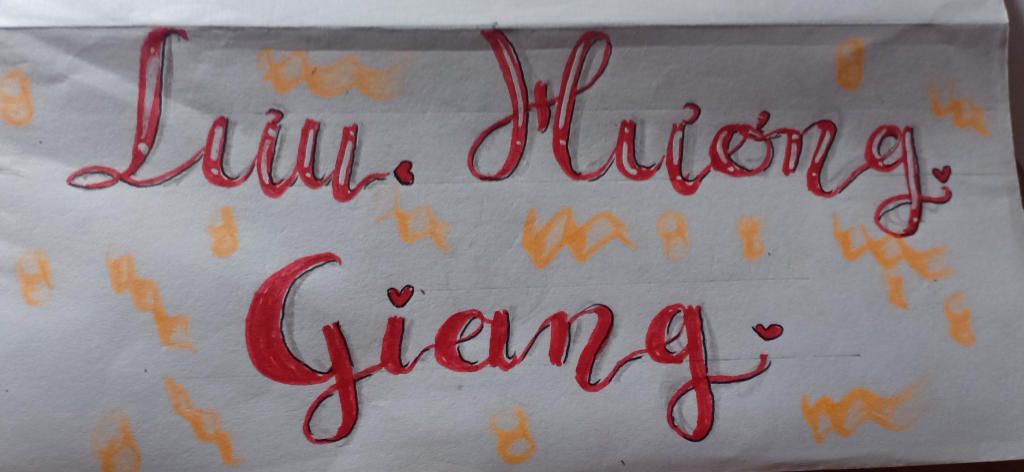 Lưu. Hương.
Giang.